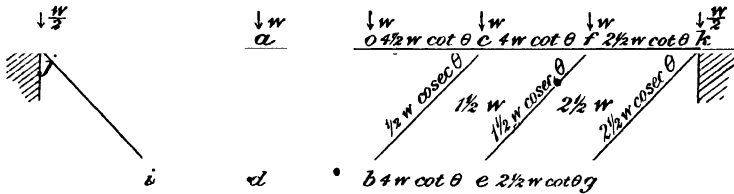 w/2 w w w w w/2
a o 4½ w cot θ c 4 w cot θ f 2½ w cot θ k
½ w cosec θ 1½ w 1½ w cosec θ 2½ w 2½ w cosec θ
i d b 4 w cot θ e 2½ w cot θ g